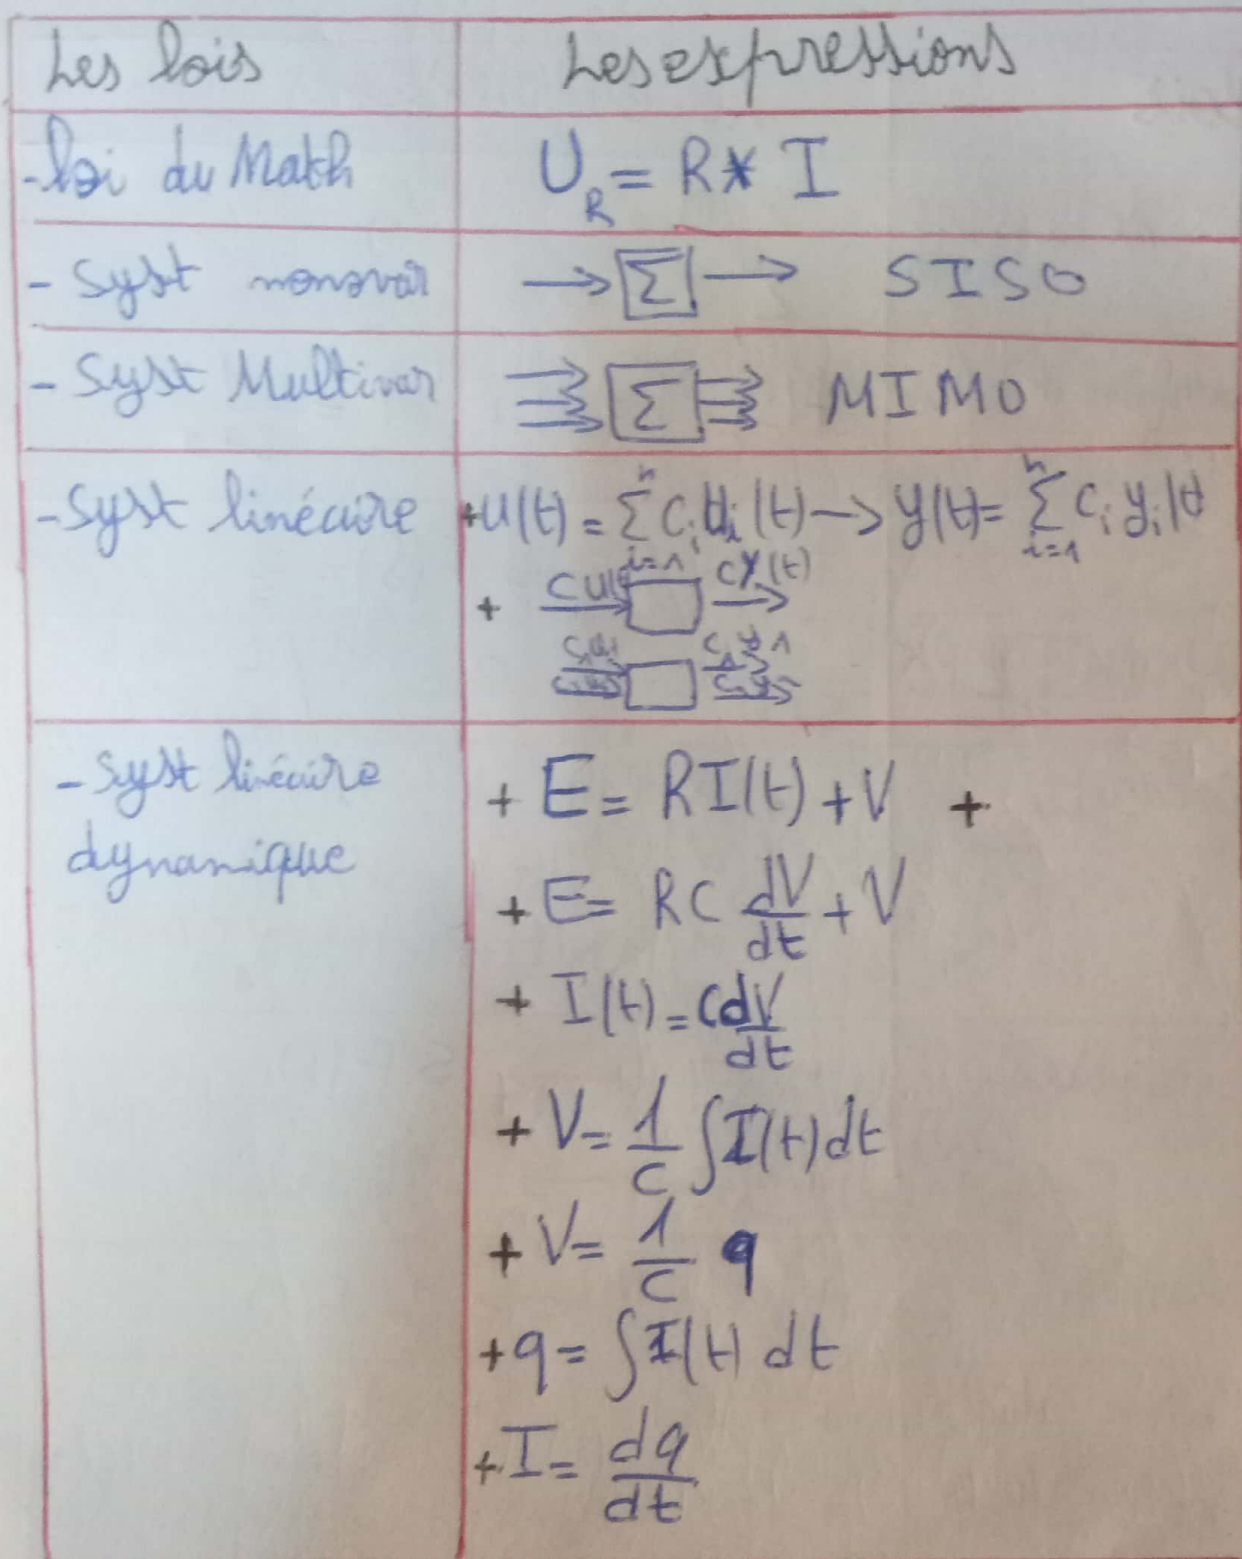 Les lois Les expressions
- loi du Math U_R = R * I
- Syst monovar → Σ → SISO
- Syst Multivar Σ MIMO
- Syst linéaire + u(t) = Σ_{i=1}^{n} C_i U_i (t) → y(t) = Σ_{i=1}^{n} C_i y_i (t)
+ CU(t CY(t)
C_1 y_1
- Syst linéaire + E = RI(t) + V +
dynamique + E = RC dV/dt + V
+ I(t) = C dV/dt
+ V = 1/C ∫ I(t) dt
+ V = 1/C q
+ q = ∫ I(t) dt
+ I = dq/dt